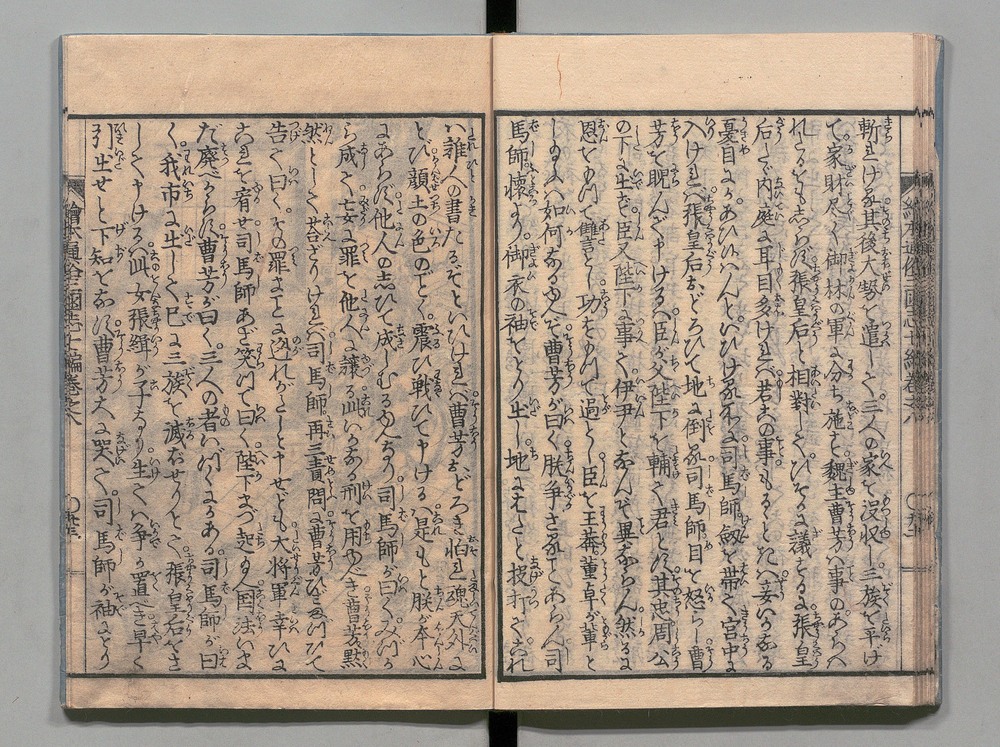 斬ける其後大勢を遣して三人の家を没収し三族を平げ
て家財尽く御林の軍に分ち施す魏主曹芳ハ事のあらハ
れたるをもしらず張皇后と相對してひそかに議するに張皇
后しバ内庭ハ耳目多けれバ若此事もるゝときハ妾いかなる
憂目にかあひ候ハんといひける処に司馬師剱を帯て宮中に
入けれバ張皇后おどろひて地に倒る司馬師目を怒らし曹
芳を睨んで申けるハ臣が父陛下を輔て君とす其忠周公
の下に出ず臣又陛下に事て伊尹となんぞ異ならん然るに
恩をもつて讐とし功をもつて過とし臣を王莽董卓が輩と
し給ふハ如何なるゆへぞ曹芳が曰く朕争さる事あらん司
馬師懐より御衣の袖をとり出し地になげすて これ
繪本通俗三國志七編巻之八
ハ誰人の書たるぞといひけれバ曹芳おどろき怕れ魂天外に
とび顔土の色のごとく震ひ戦ひて申けるハ是もと朕が本心
にあらず他人の志ひて成しむるゆへなり司馬師が曰くみづか
ら成て妄に罪を他人に譲る此いかなる刑を用ゆべき曹芳黙
然として荅ざりけれバ司馬師再三責問に曹芳ひざまづひて
告て曰くその罪まことに遁れがたしと申せども大将軍幸ひに
これを宥せ司馬師あざ笑つて曰く陛下まづ起給へ国法いま
だ廃べからず曹芳が曰く三人の者ハいづくにかある司馬師が曰
く我市に出して已に三族を滅ぼせりとて張皇后をさ
して申けるハ此女張緝が子なり生てハ争か置べき早く
引出せと下知をなす曹芳大に哭て司馬師が袖にとり
繪本通俗三國志七編巻之八